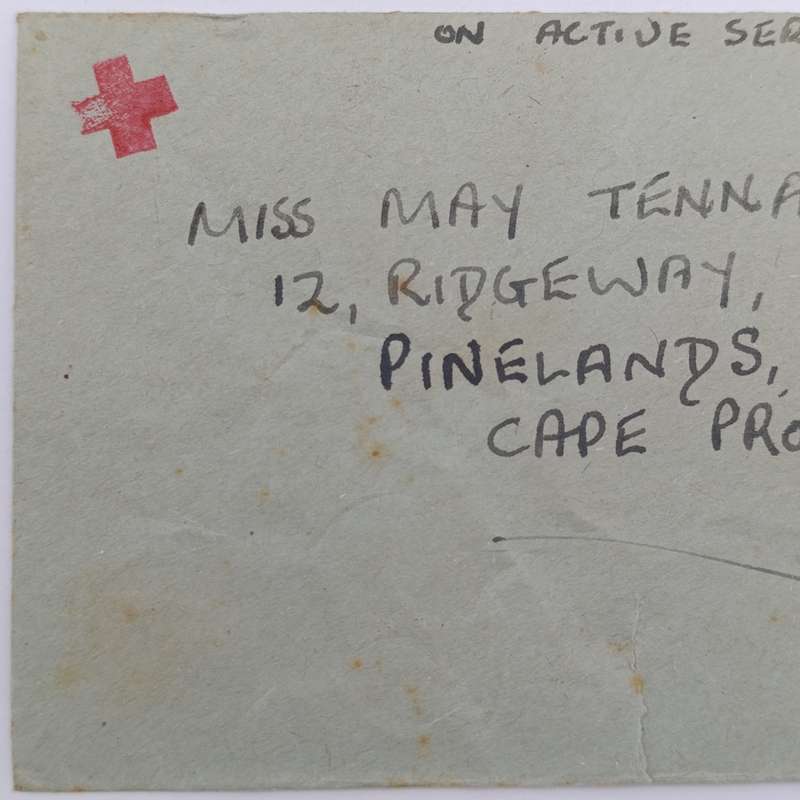 ON ACTIVE SER
MISS MAY TENNA
12, RIDGEWAY,
PINELANDS,
CAPE PRO